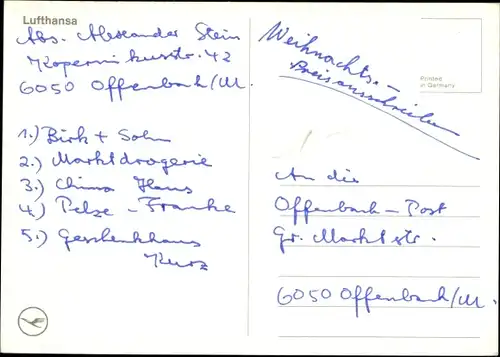 Lufthansa
Abs. Alexander Stein
Kopernikusstr. 42
6050 Offenbach/M.
1.) Birk + Sohn
2.) Marktdrogerie
3.) China Haus
4.) Pelze - Franke
5.) Geschenkhaus
Kurz
Weihnachts-
Preisausschreiben
Printed
in Germany
An die
Offenbach-Post
Gr. Marktstr.
6050 Offenbach/M.